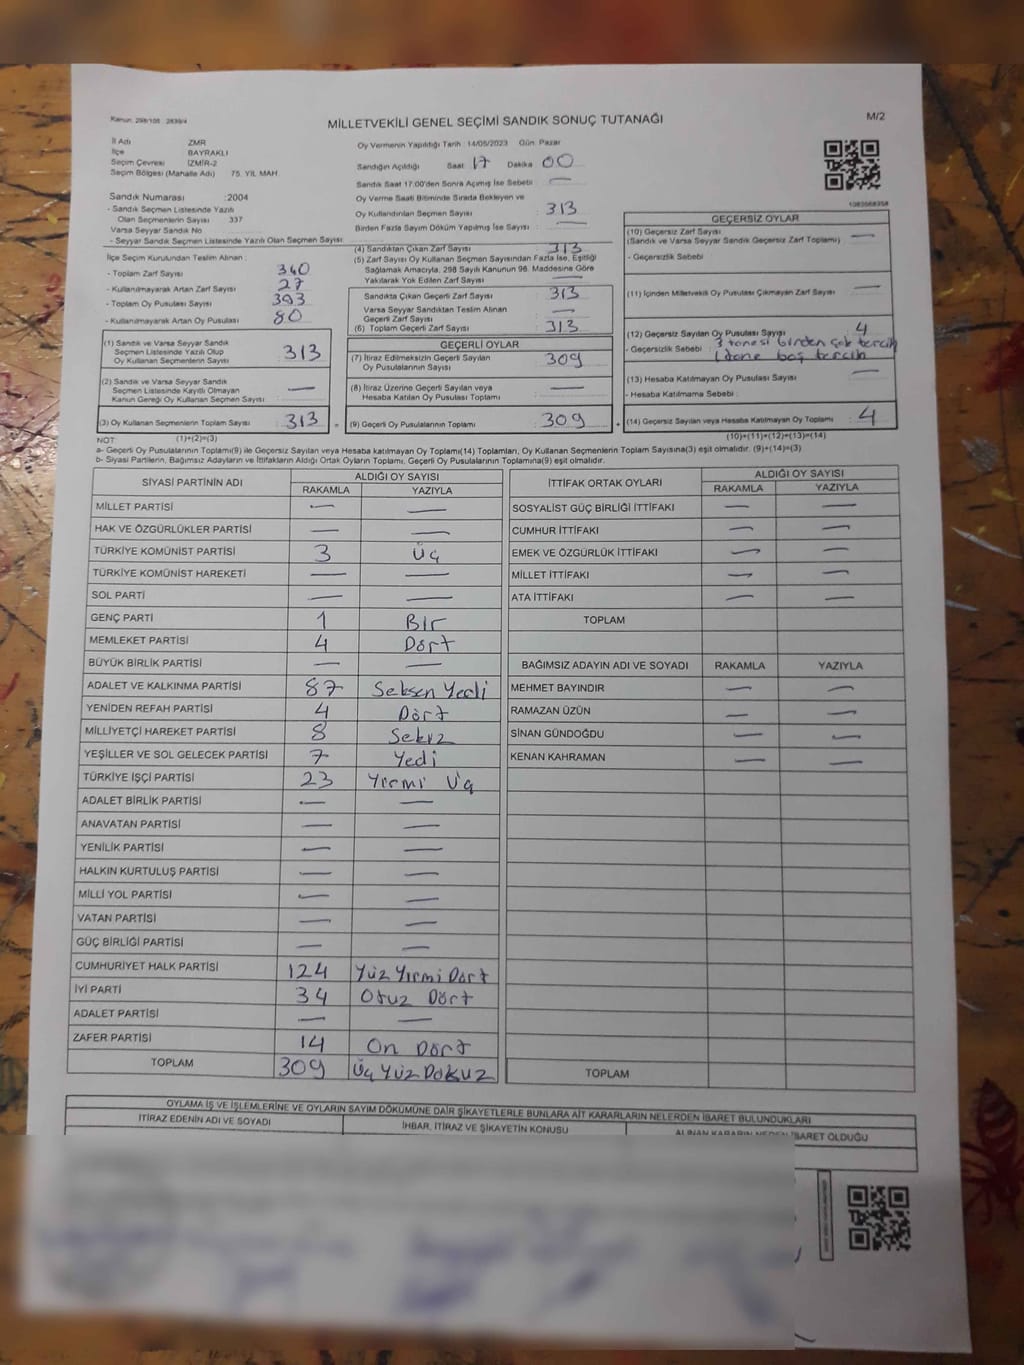 Kanun: 298/105 2839/4
MİLLETVEKİLİ GENEL SEÇİMİ SANDIK SONUÇ TUTANAĞI
M/2
İl Adı ZMR
İlçe BAYRAKLI
Seçim Çevresi İZMİR-2
Seçim Bölgesi (Mahalle Adı) 75. YIL MAH.
Sandık Numarası :2004
- Sandık Seçmen Listesinde Yazılı
Olan Seçmenlerin Sayısı 337
Varsa Seyyar Sandık No
- Seyyar Sandık Seçmen Listesinde Yazılı Olan Seçmen Sayısı:
İlçe Seçim Kurulundan Teslim Alınan :
- Toplam Zarf Sayısı : 340
- Kullanılmayarak Artan Zarf Sayısı : 27
- Toplam Oy Pusulası Sayısı : 393
- Kullanılmayarak Artan Oy Pusulası : 80
(1) Sandık ve Varsa Seyyar Sandık
Seçmen Listesinde Yazılı Olup
Oy Kullanan Seçmenlerin Sayısı : 313
(2) Sandık ve Varsa Seyyar Sandık
Seçmen Listesinde Kayıtlı Olmayan
Kanun Gereği Oy Kullanan Seçmen Sayısı : —
(3) Oy Kullanan Seçmenlerin Toplam Sayısı : 313
Oy Vermenin Yapıldığı Tarih :14/05/2023 Gün: Pazar
Sandığın Açıldığı Saat : 17 Dakika : 00
Sandık Saat 17:00'den Sonra Açılmış İse Sebebi : —
Oy Verme Saati Bitiminde Sırada Bekleyen ve
Oy Kullandırılan Seçmen Sayısı : 313
Birden Fazla Sayım Döküm Yapılmış İse Sayısı : —
(4) Sandıktan Çıkan Zarf Sayısı : 313
(5) Zarf Sayısı Oy Kullanan Seçmen Sayısından Fazla İse, Eşitliği
Sağlamak Amacıyla, 298 Sayılı Kanunun 98. Maddesine Göre
Yakılarak Yok Edilen Zarf Sayısı : —
Sandıkta Çıkan Geçerli Zarf Sayısı : 313
Varsa Seyyar Sandıktan Teslim Alınan
Geçerli Zarf Sayısı : —
(6) Toplam Geçerli Zarf Sayısı : 313
GEÇERLİ OYLAR
(7) İtiraz Edilmeksizin Geçerli Sayılan
Oy Pusulalarının Sayısı : 309
(8) İtiraz Üzerine Geçerli Sayılan veya
Hesaba Katılan Oy Pusulası Toplamı : —
(9) Geçerli Oy Pusulalarının Toplamı : 309
GEÇERSİZ OYLAR
(10) Geçersiz Zarf Sayısı
(Sandık ve Varsa Seyyar Sandık Geçersiz Zarf Toplamı) : —
- Geçersizlik Sebebi :
(11) İçinden Milletvekili Oy Pusulası Çıkmayan Zarf Sayısı : —
(12) Geçersiz Sayılan Oy Pusulası Sayısı : 4
- Geçersizlik Sebebi : 3 tanesi birden çok tercih
1 tane boş tercih
(13) Hesaba Katılmayan Oy Pusulası Sayısı : —
- Hesaba Katılmama Sebebi :
(14) Geçersiz Sayılan veya Hesaba Katılmayan Oy Toplamı : 4
NOT: (1)+(2)=(3)
(10)+(11)+(12)+(13)=(14)
a- Geçerli Oy Pusulalarının Toplamı(9) ile Geçersiz Sayılan veya Hesaba katılmayan Oy Toplamı(14) Toplamları, Oy Kullanan Seçmenlerin Toplam Sayısına(3) eşit olmalıdır. (9)+(14)=(3)
b- Siyasi Partilerin, Bağımsız Adayların ve İttifakların Aldığı Ortak Oyların Toplamı, Geçerli Oy Pusulalarının Toplamına(9) eşit olmalıdır.
SİYASİ PARTİNİN ADI ALDIĞI OY SAYISI
RAKAMLA YAZIYLA
MİLLET PARTİSİ — —
HAK VE ÖZGÜRLÜKLER PARTİSİ — —
TÜRKİYE KOMÜNİST PARTİSİ 3 Üç
TÜRKİYE KOMÜNİST HAREKETİ — —
SOL PARTİ — —
GENÇ PARTİ 1 Bir
MEMLEKET PARTİSİ 4 Dört
BÜYÜK BİRLİK PARTİSİ — —
ADALET VE KALKINMA PARTİSİ 87 Seksen Yedi
YENİDEN REFAH PARTİSİ 4 Dört
MİLLİYETÇİ HAREKET PARTİSİ 8 Sekiz
YEŞİLLER VE SOL GELECEK PARTİSİ 7 Yedi
TÜRKİYE İŞÇİ PARTİSİ 23 Yirmi Üç
ADALET BİRLİK PARTİSİ — —
ANAVATAN PARTİSİ — —
YENİLİK PARTİSİ — —
HALKIN KURTULUŞ PARTİSİ — —
MİLLİ YOL PARTİSİ — —
VATAN PARTİSİ — —
GÜÇ BİRLİĞİ PARTİSİ — —
CUMHURİYET HALK PARTİSİ 124 Yüz Yirmi Dört
İYİ PARTİ 34 Otuz Dört
ADALET PARTİSİ — —
ZAFER PARTİSİ 14 On Dört
TOPLAM 309 Üç Yüz Dokuz
İTTİFAK ORTAK OYLARI ALDIĞI OY SAYISI
RAKAMLA YAZIYLA
SOSYALİST GÜÇ BİRLİĞİ İTTİFAKI — —
CUMHUR İTTİFAKI — —
EMEK VE ÖZGÜRLÜK İTTİFAKI — —
MİLLET İTTİFAKI — —
ATA İTTİFAKI — —
TOPLAM
BAĞIMSIZ ADAYIN ADI VE SOYADI RAKAMLA YAZIYLA
MEHMET BAYINDIR — —
RAMAZAN ÜZÜN — —
SİNAN GÜNDOĞDU — —
KENAN KAHRAMAN — —
TOPLAM
OYLAMA İŞ VE İŞLEMLERİNE VE OYLARIN SAYIM DÖKÜMÜNE DAİR ŞİKAYETLERLE BUNLARA AİT KARARLARIN NELERDEN İBARET BULUNDUKLARI
İTİRAZ EDENİN ADI VE SOYADI İHBAR, İTİRAZ VE ŞİKAYETİN KONUSU ALINAN KARARIN NEDEN İBARET OLDUĞU